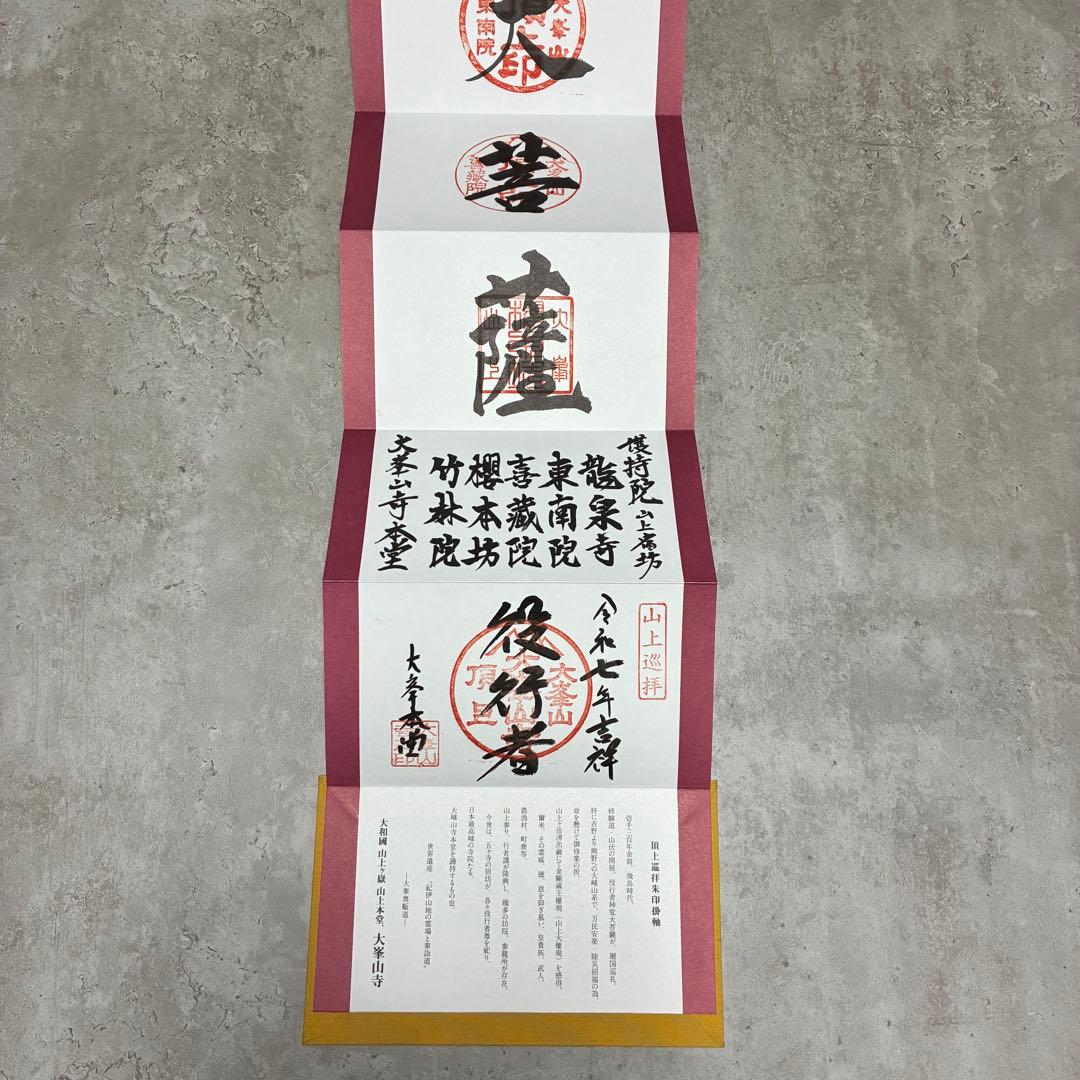 大
大峯山
東南院
菩
大峯山
喜蔵院
薩
大峯
護持院 山上宿坊
龍泉寺
東南院
喜蔵院
櫻本坊
竹林院
大峯山寺本堂
山上巡拝
令和七年吉祥
役行者
大峯山
頂上
大峯本堂
頂上巡拝朱印掛軸
壱千三百年余前、飛鳥時代、
修験道・山伏の開祖、役行者神変大菩薩が、廻国巡礼、
特に吉野より熊野への大峰山系で、万民安楽・除災招福の為、
命を懸けて御修業の折、
山上ヶ岳湧出巖にて金剛蔵王権現(山上大権現)を感得。
爾来、その霊威、徳、恩を仰ぎ慕い、皇貴族、武人、
農漁村、町衆等、
山上参り、行者講が隆興し、幾多の坊院、参籠所が存在。
今世は、五ヶ寺の宿坊が、各々役行者尊を祀り、
日本最高峰の寺院たる、
大峰山寺本堂を護持するもの也。
世界遺産 “紀伊山地の霊場と参詣道”
―大峯奥駈道―
大和國 山上ヶ嶽 山上本堂、大峯山寺